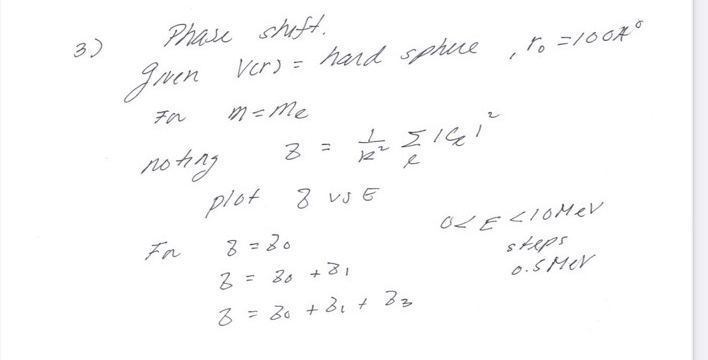 3) Phase shift.
given V(r) = hard sphere , r₀ = 100 A°
For m = me
noting z = 1/k² Σ_l |C_l|²
plot z vs E
0 < E < 10 MeV
steps
0.5 MeV
For z = z₀
z = z₀ + z₁
z = z₀ + z₁ + z₃